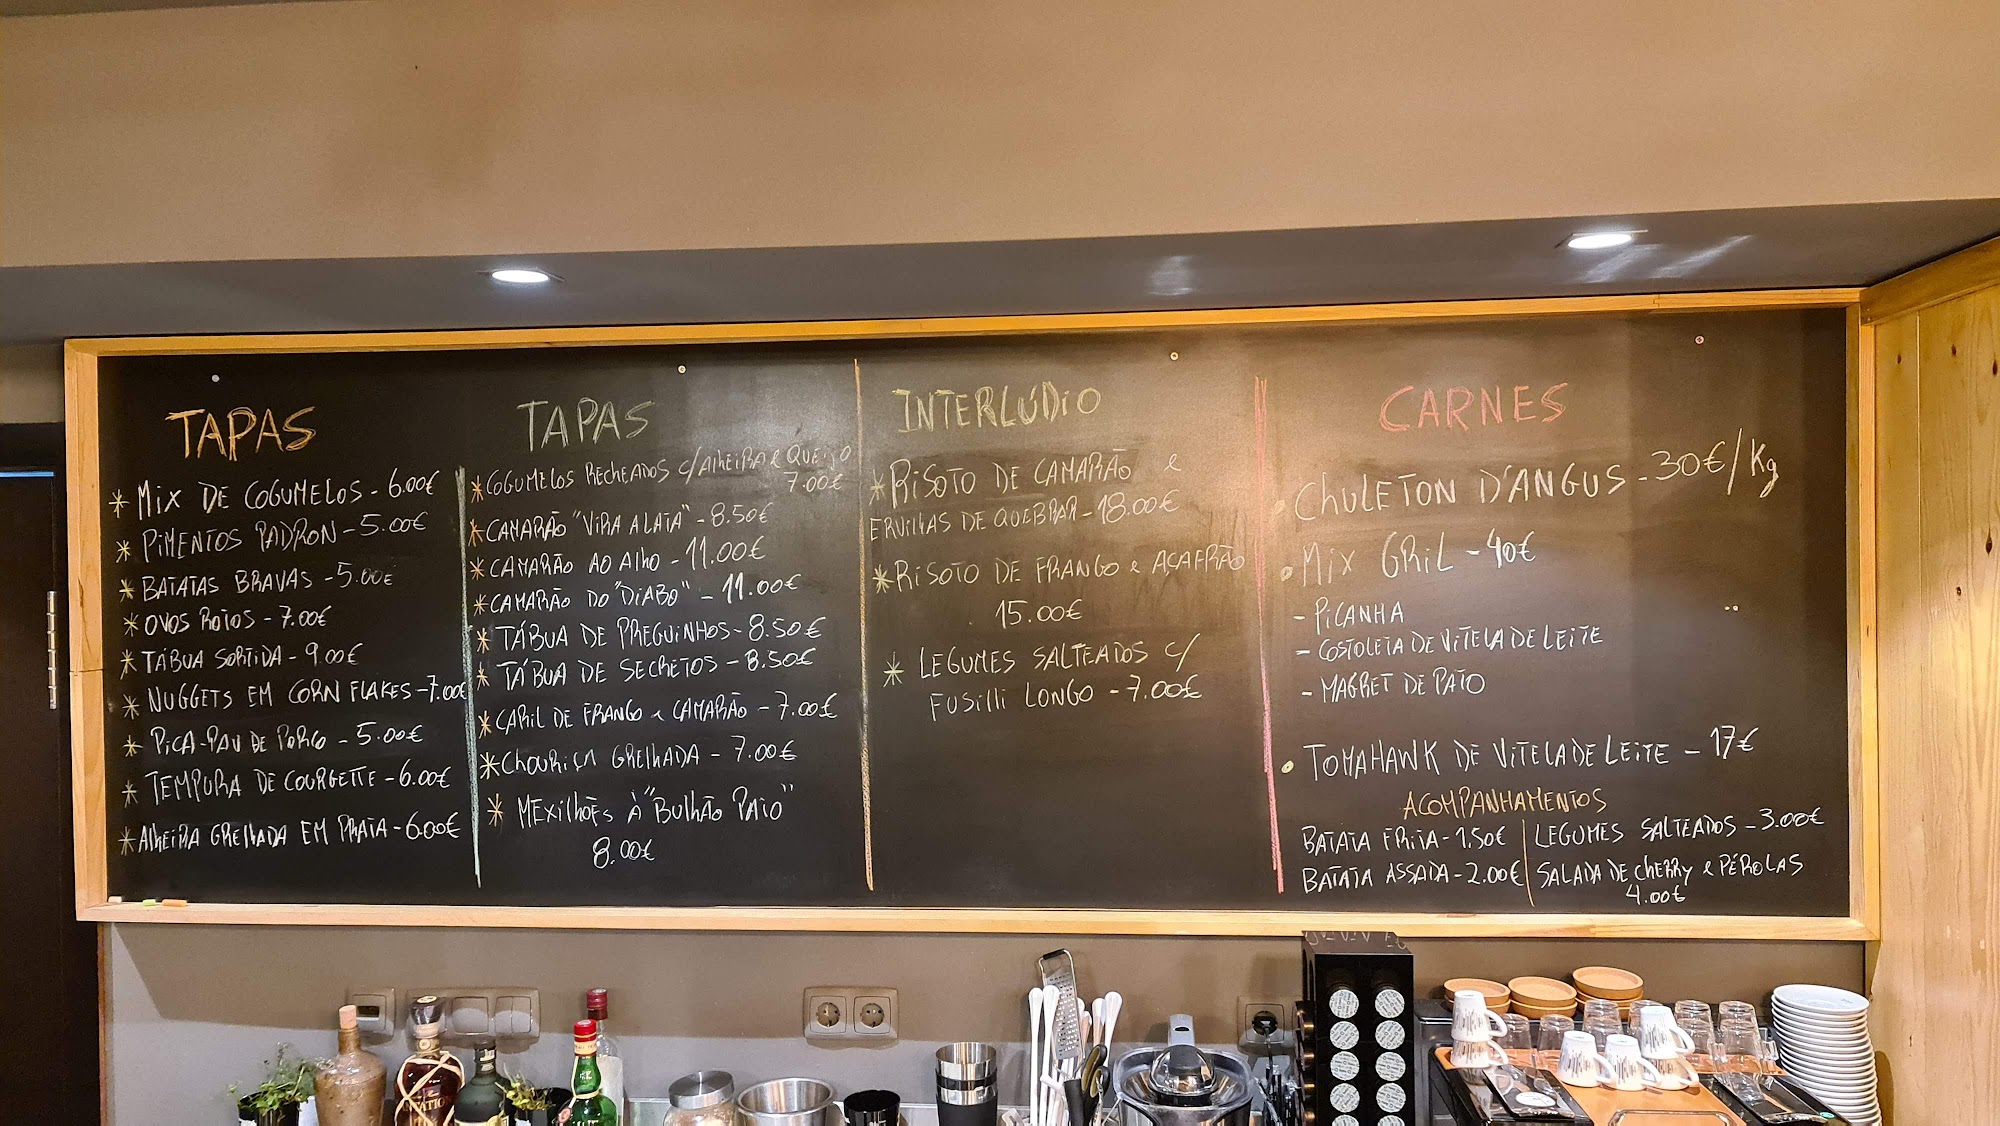 TAPAS
* MIX DE COGUMELOS - 6.00€
* PIMENTOS PADRON - 5.00€
* BATATAS BRAVAS - 5.00€
* OVOS ROTOS - 7.00€
* TÁBUA SORTIDA - 9.00€
* NUGGETS EM CORN FLAKES - 7.00€
* PICA-PAU DE PORCO - 5.00€
* TEMPURA DE COURGETTE - 6.00€
* AlhEIRA GRElhADA EM PRATA - 6.00€
TAPAS
* COGUMELOS RECHEADOS c/AlhEIRA e QUEIJO
7.00€
* CAMARÃO "VIRA A LATA" - 8.50€
* CAMARÃO AO Alho - 11.00€
* CAMARÃO DO "DIABO" - 11.00€
* TÁBUA DE PREGUINHOS - 8.50€
* TÁBUA DE SECRETOS - 8.50€
* CARIL DE FRANGO e CAMARÃO - 7.00€
* ChOURIÇA GRElhADA - 7.00€
* MEXIlhÕES À "BUlhÃO PATO"
8.00€
INTERLÚDIO
* RISOTO DE CAMARÃO e
ERVILHAS DE QUEBRAR - 18.00€
* RISOTO DE FRANGO e AÇAFRÃO
15.00€
* LEGUMES SALTEADOS c/
FUSILLI LONGO - 7.00€
CARNES
• ChULETON D'ANGUS - 30€/Kg
• MIX GRIL - 40€
- PICANHA
- COSTOLETA DE VITELA DE LEITE
- MAGRET DE PATO
• TOMAHAWK DE VITELA DE LEITE - 17€
ACOMPANHAMENTOS
BATATA FRITA - 1.50€
BATATA ASSADA - 2.00€
LEGUMES SALTEADOS - 3.00€
SALADA DE ChERRy e PÉROLAS
4.00€